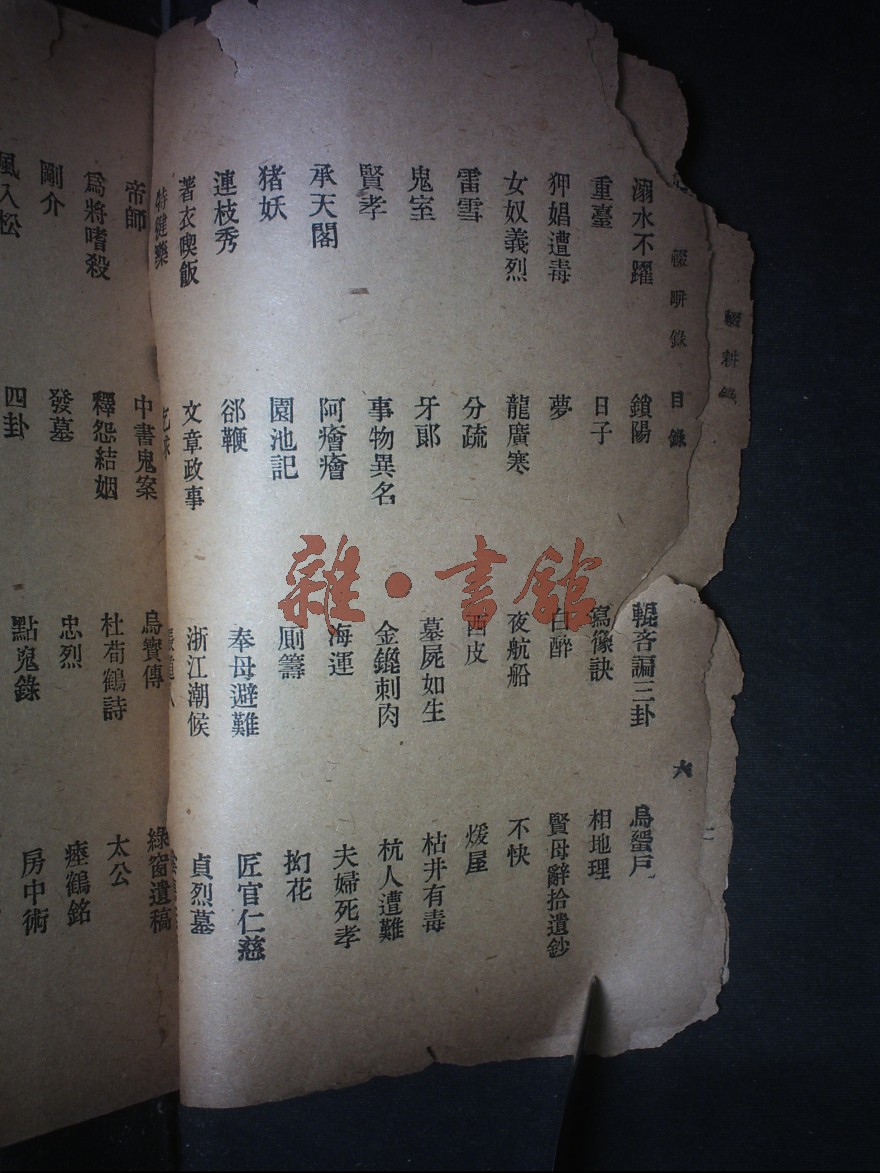 輟耕錄 目錄 六
輟耕錄
溺水不躍 鎖陽 烏蜑戶
重臺 日子 寫像訣 相地理
狎娼遭毒 夢 白醉 賢母辭拾遺鈔
女奴義烈 龍廣寒 夜航船 不快
雷雪 分疏 西皮 煖屋
鬼室 牙郎 墓屍如生 枯井有毒
賢孝 事物異名 金鎞刺肉 杭人遭難
承天閣 阿癐癐 海運 夫婦死孝
猪妖 園池記 厠籌 抝花
連枝秀 郤鞭 奉母避難 匠官仁慈
著衣喫飯 文章政事 浙江潮候 貞烈墓
特健藥
帝師 中書鬼案 烏寶傳 綠窗遺稿
爲將嗜殺 釋怨結姻 杜荀鶴詩 太公
剛介 發墓 忠烈 瘞鶴銘
風入松 四卦 點鬼錄 房中術
雜·書館